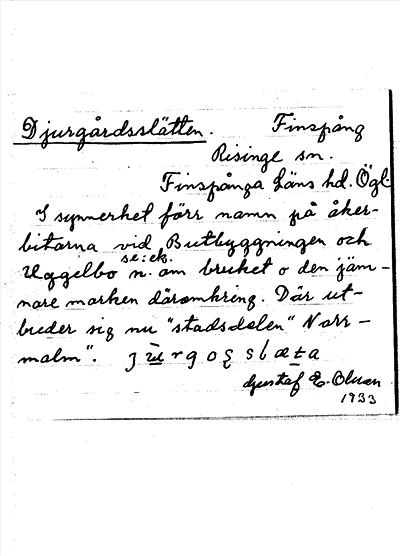 Djurgårdsslätten. Finspång
Risinge sn.
Finspånga Läns hd. Ögl.
I synnerhet förr namn på åker-
bitarna vid Butbyggningen och
se: ek.
Uggelbo n. om bruket o den jäm-
nare marken däromkring. Där ut-
breder sig nu "stadsdelen" Norr-
malm".
Gustaf E. Olsson
1933